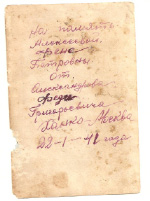 На память
Алексеевой
Фене
Петровны
от
Александрова
Феди
Григорьевича
Ханко-Москва
22-1-41 года